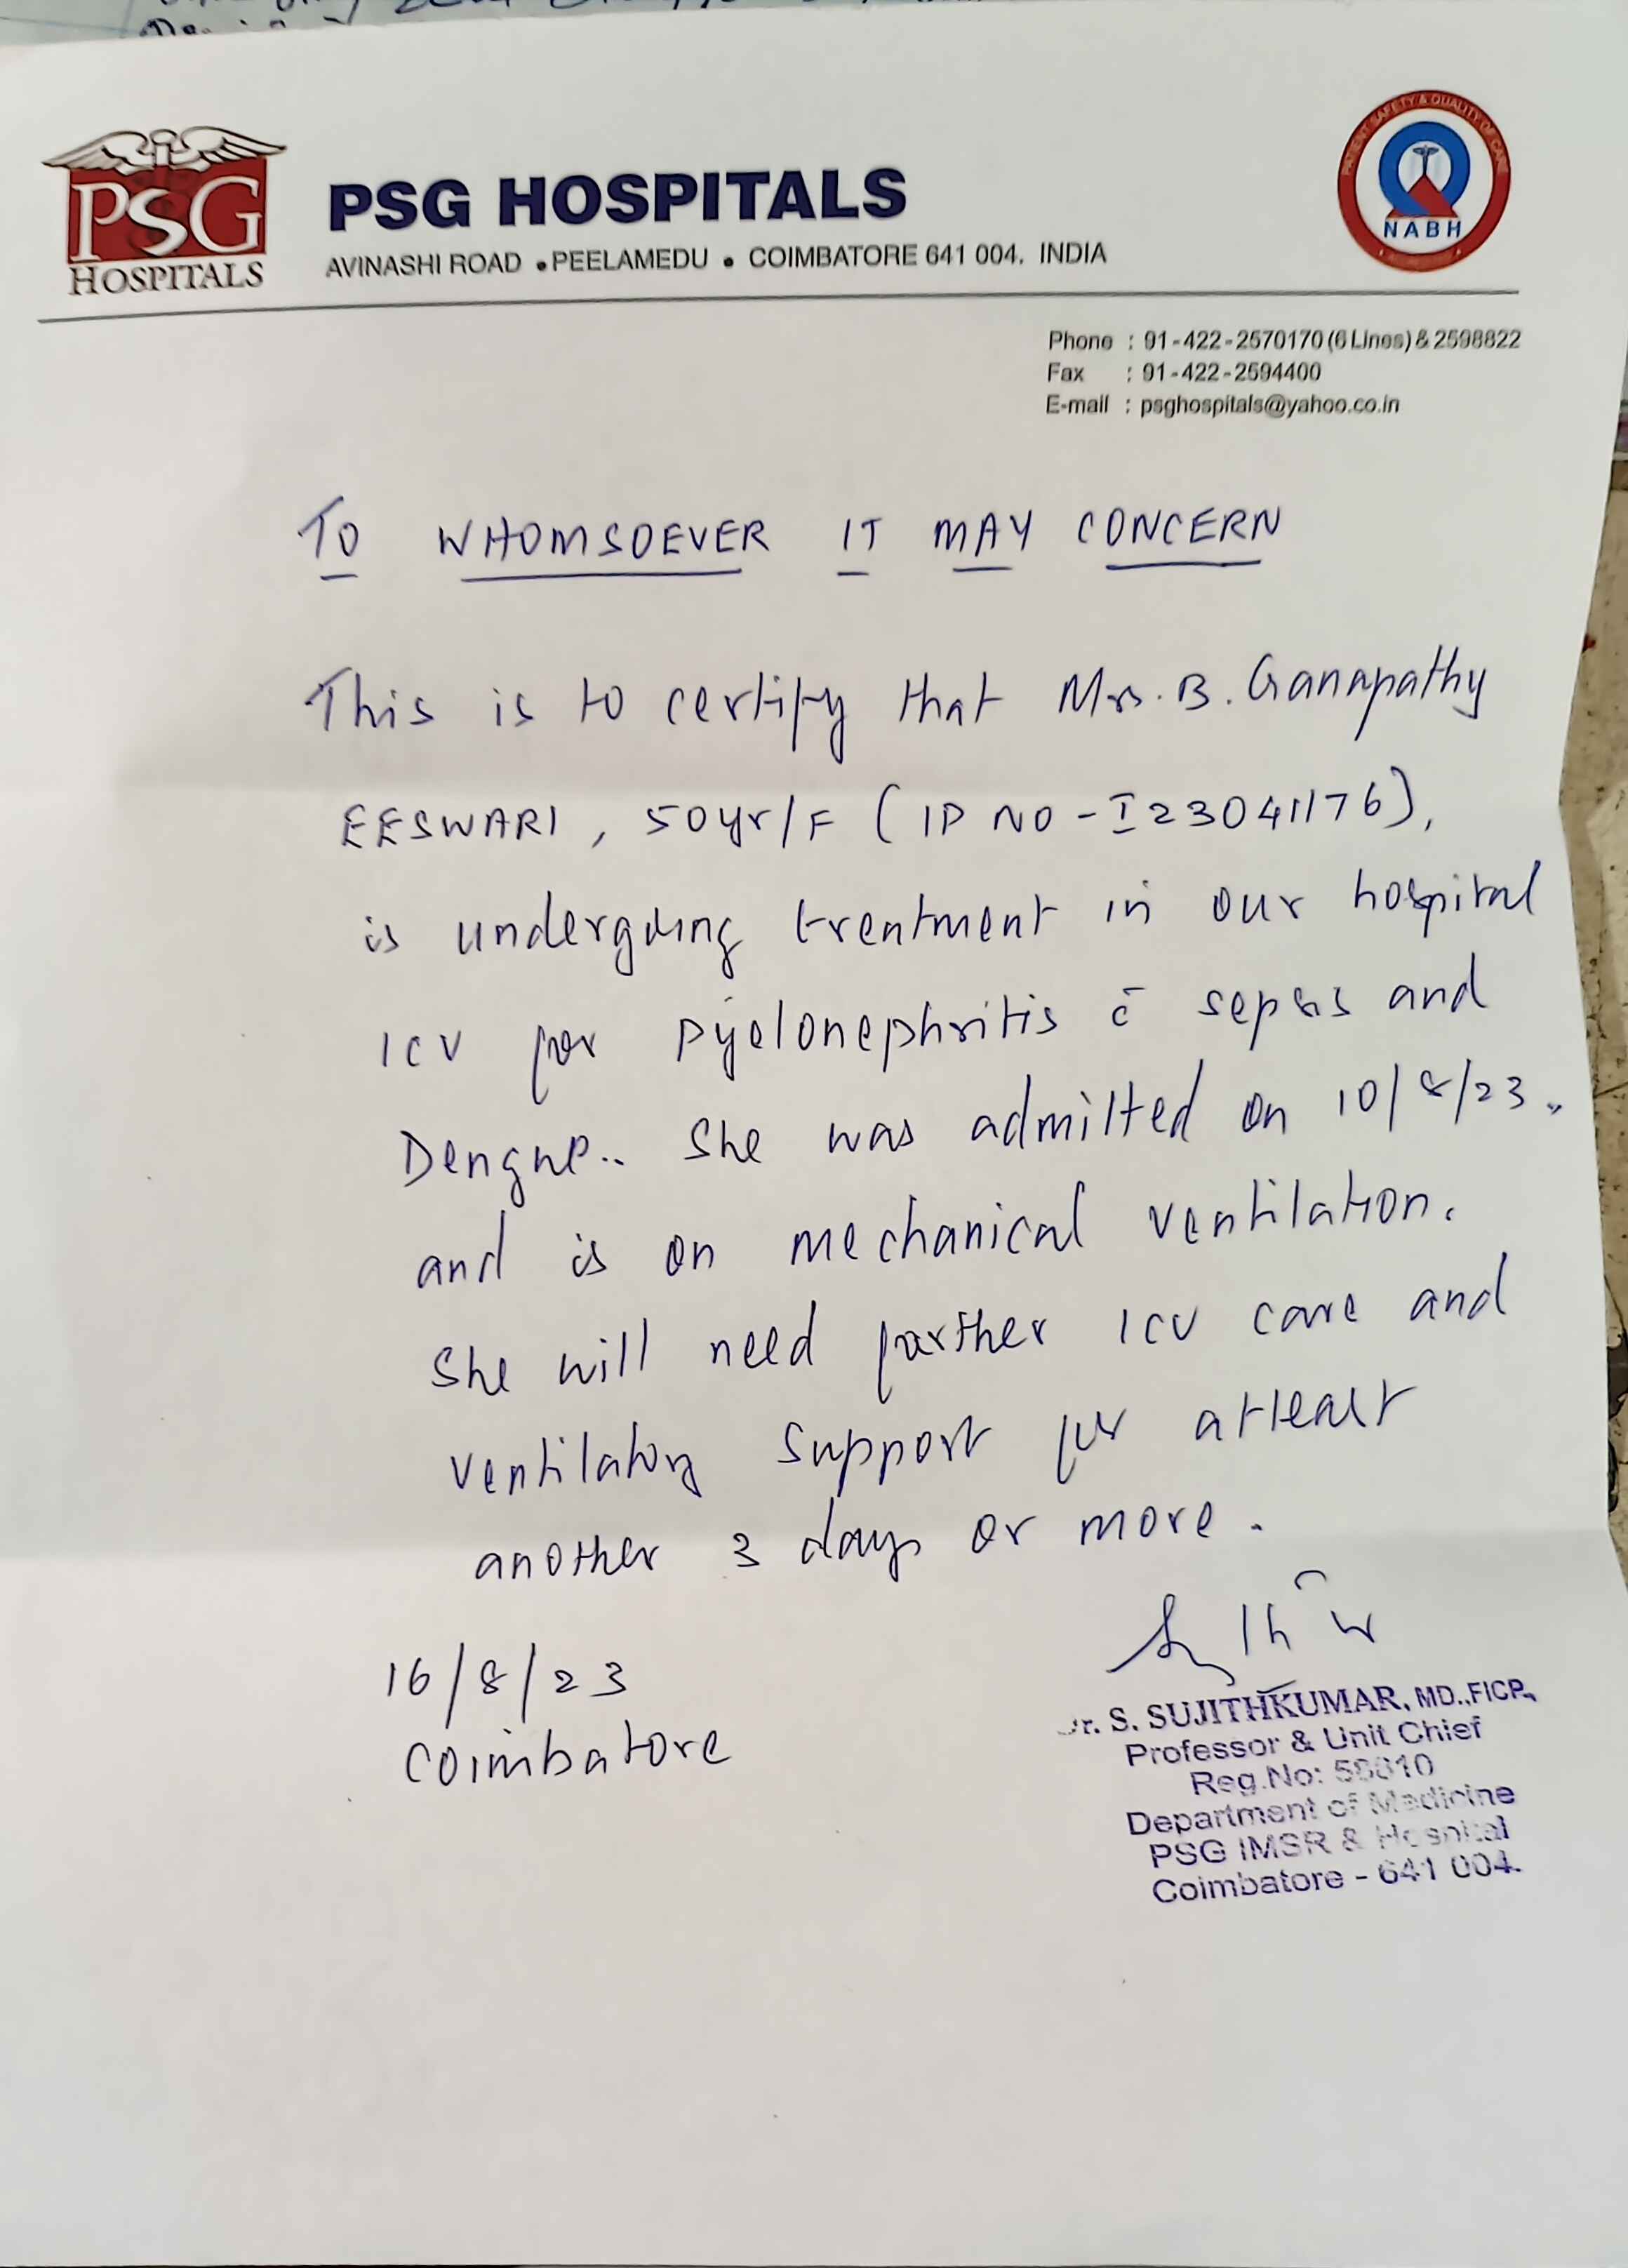 PSG
HOSPITALS
PSG HOSPITALS
AVINASHI ROAD • PEELAMEDU • COIMBATORE 641 004. INDIA
PATIENT SAFETY & QUALITY OF CARE
NABH
Phone : 91-422-2570170 (6 Lines) & 2598822
Fax : 91-422-2594400
E-mail : psghospitals@yahoo.co.in
TO WHOMSOEVER IT MAY CONCERN
This is to certify that Mrs. B. Ganapathy
EESWARI, 50yr/F (IP NO - I23041176),
is undergoing treatment in our hospital
ICU for pyelonephritis c̄ sepsis and
Dengue.. She was admitted on 10/8/23.
and is on mechanical ventilation.
She will need further ICU care and
ventilatory support for atleast
another 3 days or more.
16/8/23
Coimbatore
Dr. S. SUJITHKUMAR, MD.,FICP.,
Professor & Unit Chief
Reg.No:
Department of Medicine
PSG IMSR & Hospital
Coimbatore - 641 004.